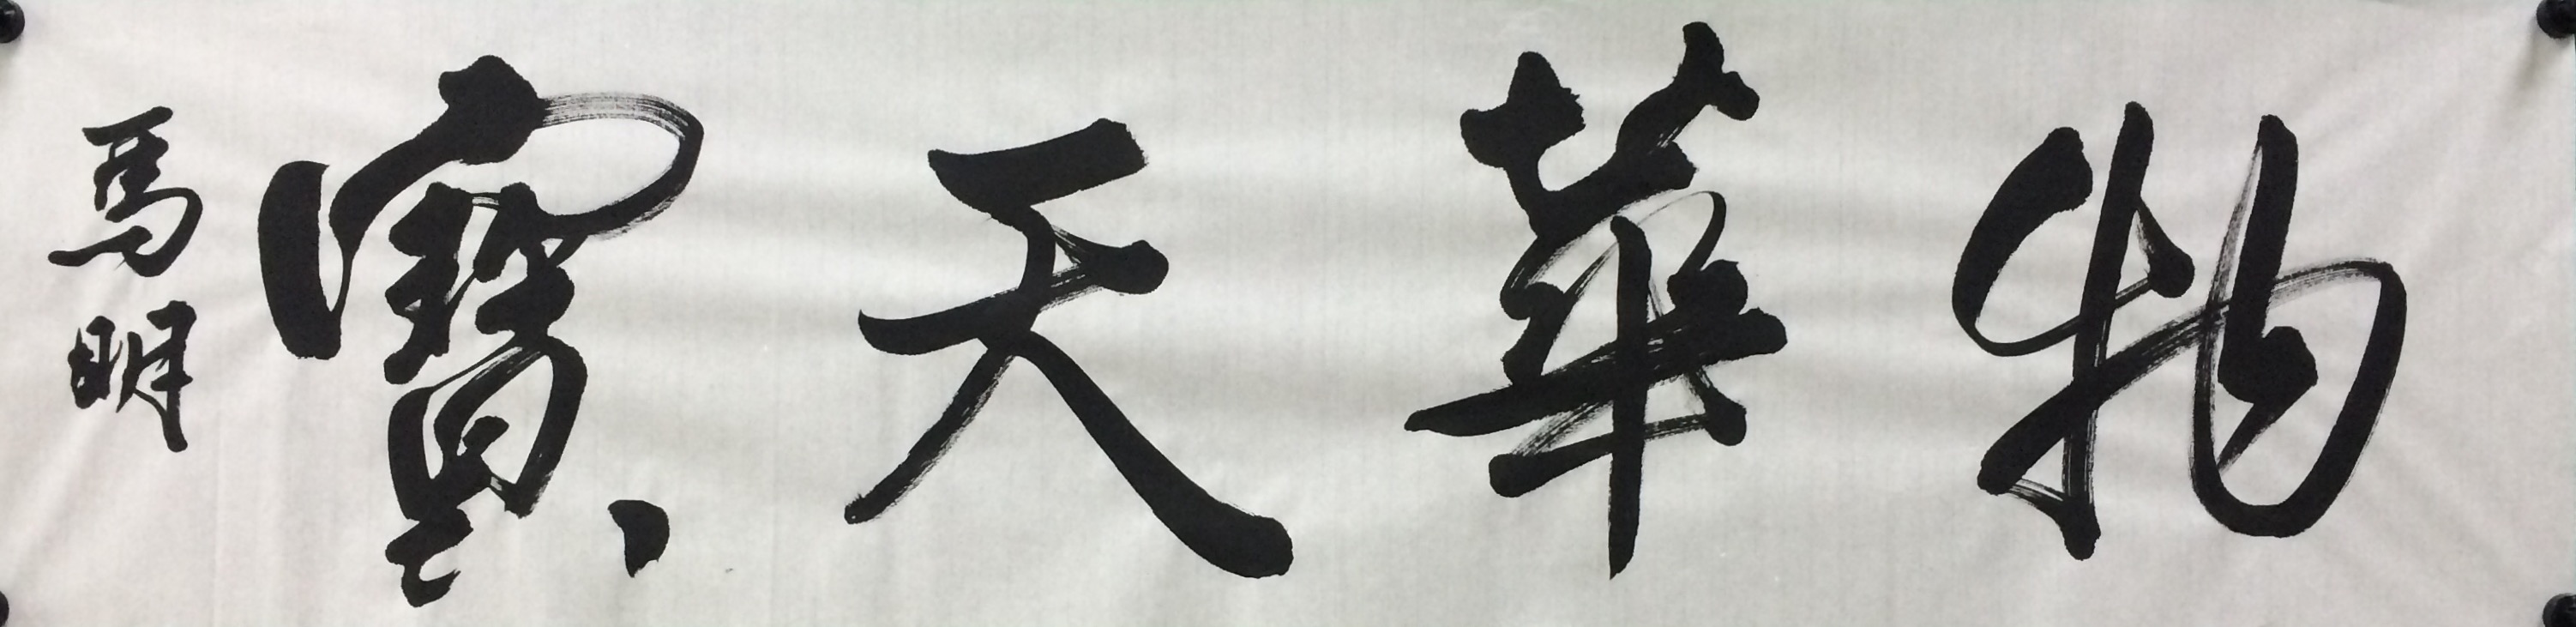 物華天寶
馬明